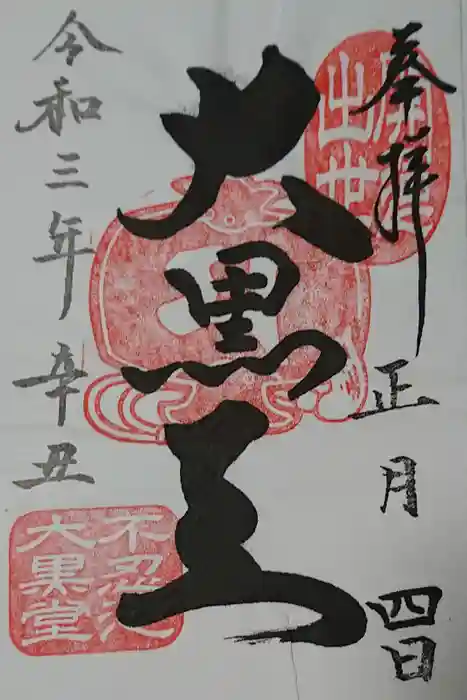 奉拝
正月四日
出世
大黒天
令和三年辛丑
不忍池
大黒堂